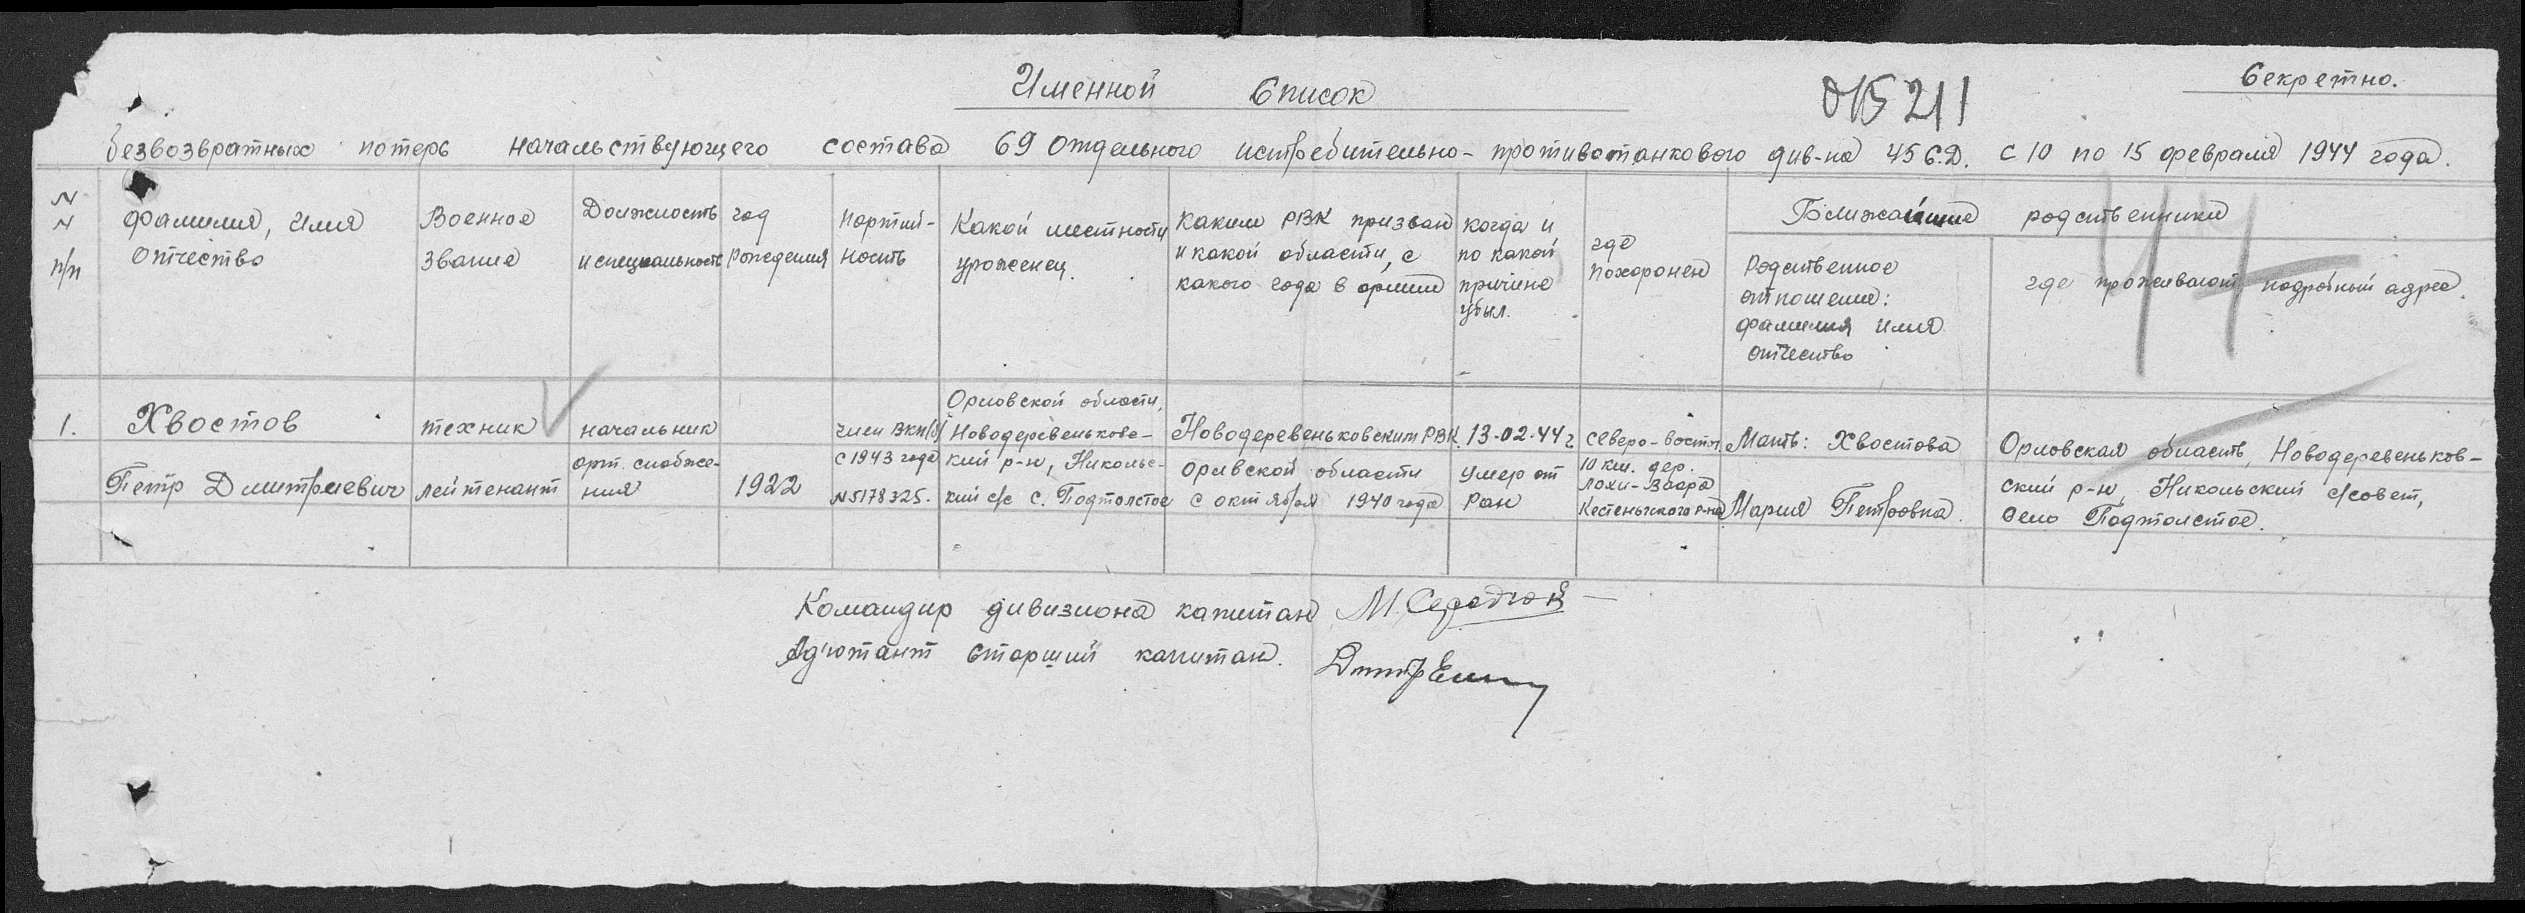 Секретно.
Именной Список
015211
безвозвратных потерь начальствующего состава 69 отдельного истребительно-противотанкового див-на 45 С.Д. с 10 по 15 февраля 1944 года.
N
N
п/п
Фамилия, Имя
отчество
Военное
звание
Должность
и специальность
год
рождения
Партий-
ность
Какой местности
уроженец.
Каким РВК призван
и какой области, с
какого года в армии
когда и
по какой
причине
убыл.
где
похоронен
Ближайшие родственники
Родственное
отношение:
фамилия имя
отчество
где проживают подробный адрес.
44
1.
Хвостов
Петр Дмитриевич
техник
лейтенант
начальник
арт. снабже-
ния
1922
член ВКП(б)
с 1943 года
N5178325.
Орловской области,
Новодеревеньковс-
кий р-н, Никольс-
кий с/с с. Подтолстое
Новодеревеньковским РВК
Орлвской области
с октября 1940 года
13-02-44 г
умер от
Ран
северо-восточ.
10 км. дер.
Лохи-Ваара
Кестеньгского р-на
Мать: Хвостова
Мария Петровна.
Орловская область, Новодеревеньков-
ский р-н, Никольский с/совет,
село Подтолстое.
Командир дивизиона капитан
Адъютант старший капитан.